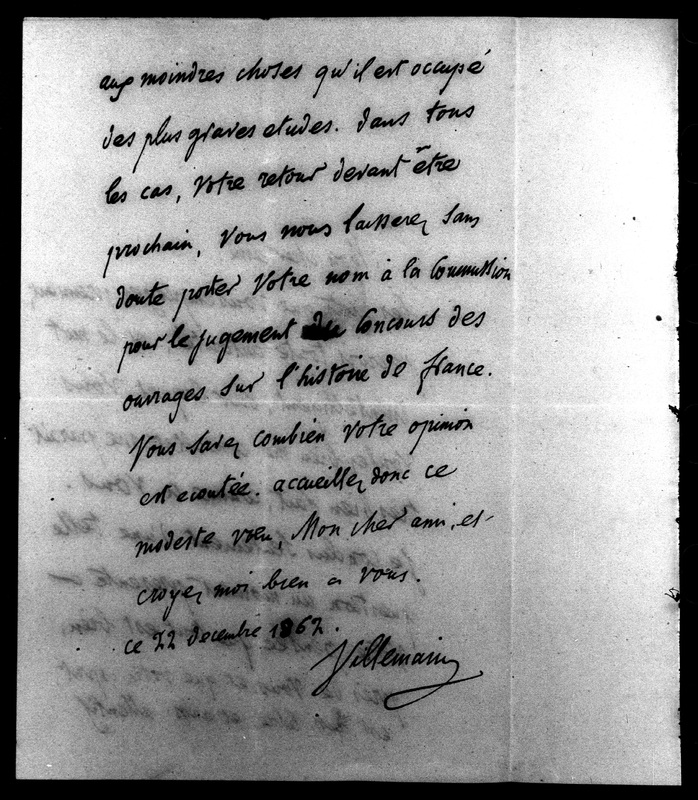 aux moindres choses qu'il est occupé
des plus graves etudes. dans tous
les cas, votre retour devant être
prochain, vous nous laisserez sans
doute porter votre nom à la Commission
pour le jugement du Concours des
ouvrages sur l'histoire de france.
Vous savez combien votre opinion
est ecoutée. accueillez donc ce
modeste voeu, Mon cher ami, et
croyez moi bien a vous.
ce 22 decembre 1862.
Villemain